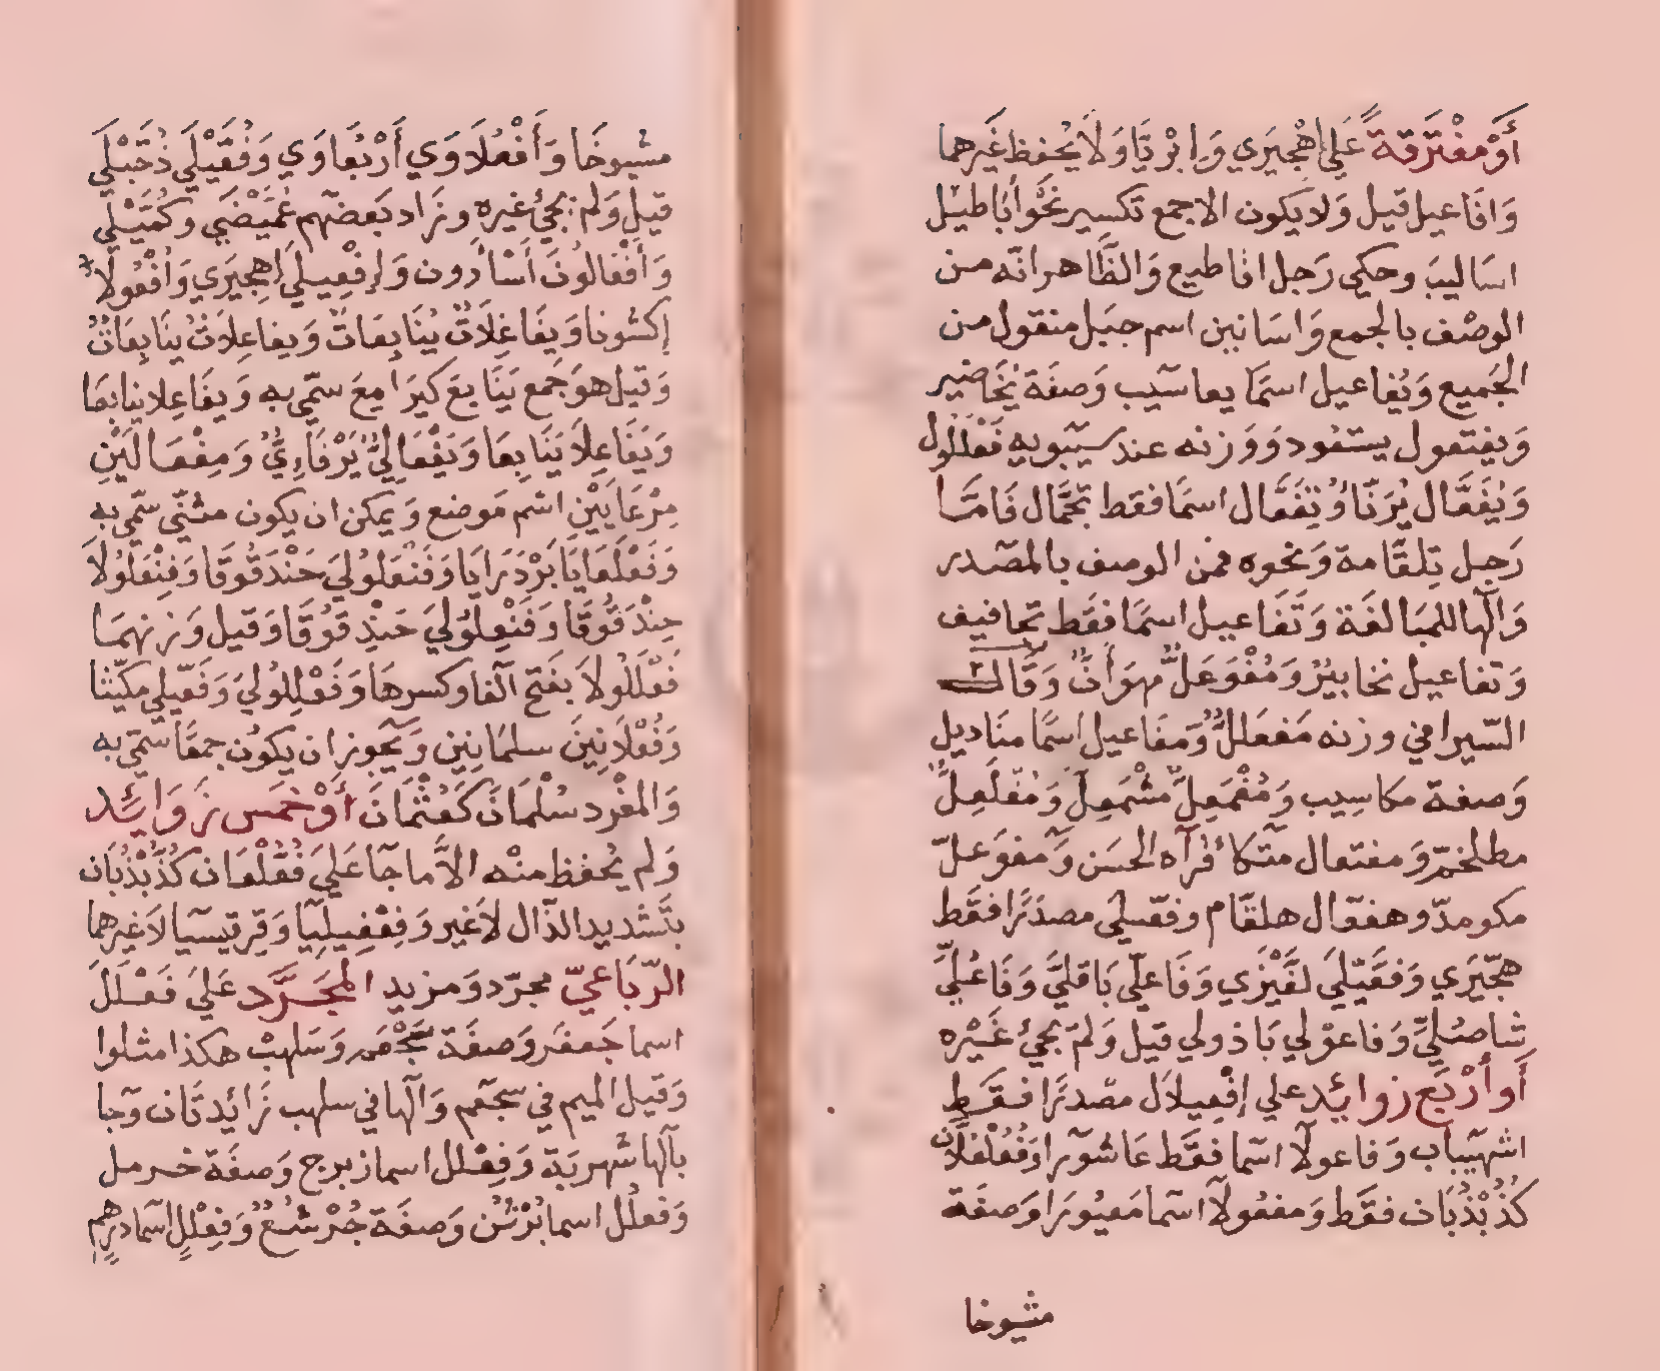 أَوْ مفْتَرقة عَلي إهْجيَري وَإبْريّا وَلَا يُحفظ غَيرهما
وَافَاعيل قيل وَلا يكون الا جمع تكسير نحوُ أبَاطيل
اسَاليبَ وحكي رَجل اقاطيع وَالظّاهر انّه من
الوصْف بالجمع وَاسَانين اسم جبَل منقول من
الجَميع وَيُفاعيل اسمًا يعاسَيب وَصفَة يُخَاضير
وَيفتعول يستعود وَوزنه عند سيبَويه فَعْلَلُول
وَيُفَعَّال يُرَنّا وَتِفَعَّال اسمًا فقط تِجَّال فَامّا
رَجل تِلقّامة وَنحوه فمن الوصف بالمصَدر
وَالهَا للمبَالغَة وَتَفَاعيل اسمًا فقَط تحافيف
وَتفاعيل نخابيْز وَمُفْوَعَلٌّ مهوَأَنٌّ وَقَال
السّيرافي وزنه مَفعَلَلٌّ وَمَفَاعيل اسمًا منَاديل
وَصفة مكاسِيب وَمُفْمَعِلٌّ مشْمَعِلٌّ وَمُفْلَعِلٌّ
مطلخمّ وَمفتعال متكأ قرآه الحسَن وَمفوَعلّ
مكومدّ وهفعّال هلقّام وفعّيلي مصدَرًا فقَط
هجّيَري وَفعَّيّلَي لغَّيْزَي وَفَاعلّي بَاقليَّ وَفَاعُليَّ
شاصُليَّ وَفاعوْلي بَاذولي قيل وَلمْ يجئ غَيْره
أَو أرْبَع زوائِد علي إفْعِيلال مصْدرًا فقَط
اشهيبَاب وَفاعولآ اسمَا فقَط عَاشوَرا وَفُعُلْعُلَان
كُذُبْذُبَان فقَط وَمفعُولآ اسمَا مَعيُورَا وَصفَة
مشيوخا
مشيوخَا وَأَفْعُلَاوَي أَرْبُعَاوَي وَفُعَّيْلَي ذُحَّيْلَي
قيل وَلم يجئ غيره وزَاد بَعضهم غُمَّيْضَي وكُمَّيْلَي
وَأَفْعَالُونَ أَسْأَرون وَإفْعِيلَي إهِجيَري وَأفْعُولَا
إكشونا وَيفَاعِلَاتٌ يُنَابِعَاتٌ وَيفاعِلاتٌ يَنَابِعَاتٌ
وَقيل هوَ جَمع يَنَابعَ كيرَامِعَ سمّي به وَيفَاعِلا ينابعَا
وَيَفَاعِلاَ يَنَابِعَا وَيَفْعَالِيُّ يَرْفَاءِيُّ وَمِفْعَالَيْنِ
مِرْعَايَيْنِ اسْم مَوضع وَيمكن ان يكون مثنّي سمّي به
وَفَعْلَعَايَا بَرْدَرَايَا وَفَنْعَلولَي حَنْدَقُوقَا وَفِنْعَلُولَا
حِنْدَقُوقَا وَفَنْعِلُولَي حَنِذْقُوقَا وَقيل وَزنهمَا
فَعْلَلُولا بفَتح الفا وكسرهَا وَفَعْلِلُولَي وَفَعّيلي مكيّثا
وَفُعْلَانِينَ سلمَانِين وَيجَوز ان يكون جمعًا سمّي به
وَالمفْرد سُلْمَانَ كَعُثْمَانَ أَوْ خمَس زَوَائِد
وَلم يُحفظ منْه الاَّ ما جَآ عَلَي فُعُّلْعُلَان كُذُّبْذُبَان
بتشديد الذّال لَاغير وَفِعْفِيلِيَا وَقِرقيسَيا لاَغيرهما
الرّبَاعيّ مجرّد وَمزيد المجَرَّد عَلَي فَعْلَلَ
اسما جَعفَر وَصفَة سَجْعَم وَسَلهبْ هكذا مثلوا
وَقيل الميم في سجَعم وَالهَا في سلهب زَائِدتَان وَجا
بالهَا شهربَة وَفِعْلل اسما زبرج وَصفَة خرمل
وَفعلُل اسما بُرْثُن وَصفَة جُرْشُعٌ وَفِعْلَلٍ اسمَا درهم